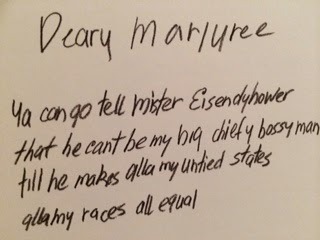 Deary Marjuree
Ya can go tell mister Eisendyhower
that he cant be my big chiefy bossy man
till he makes alla my untied states
alla my races all equal